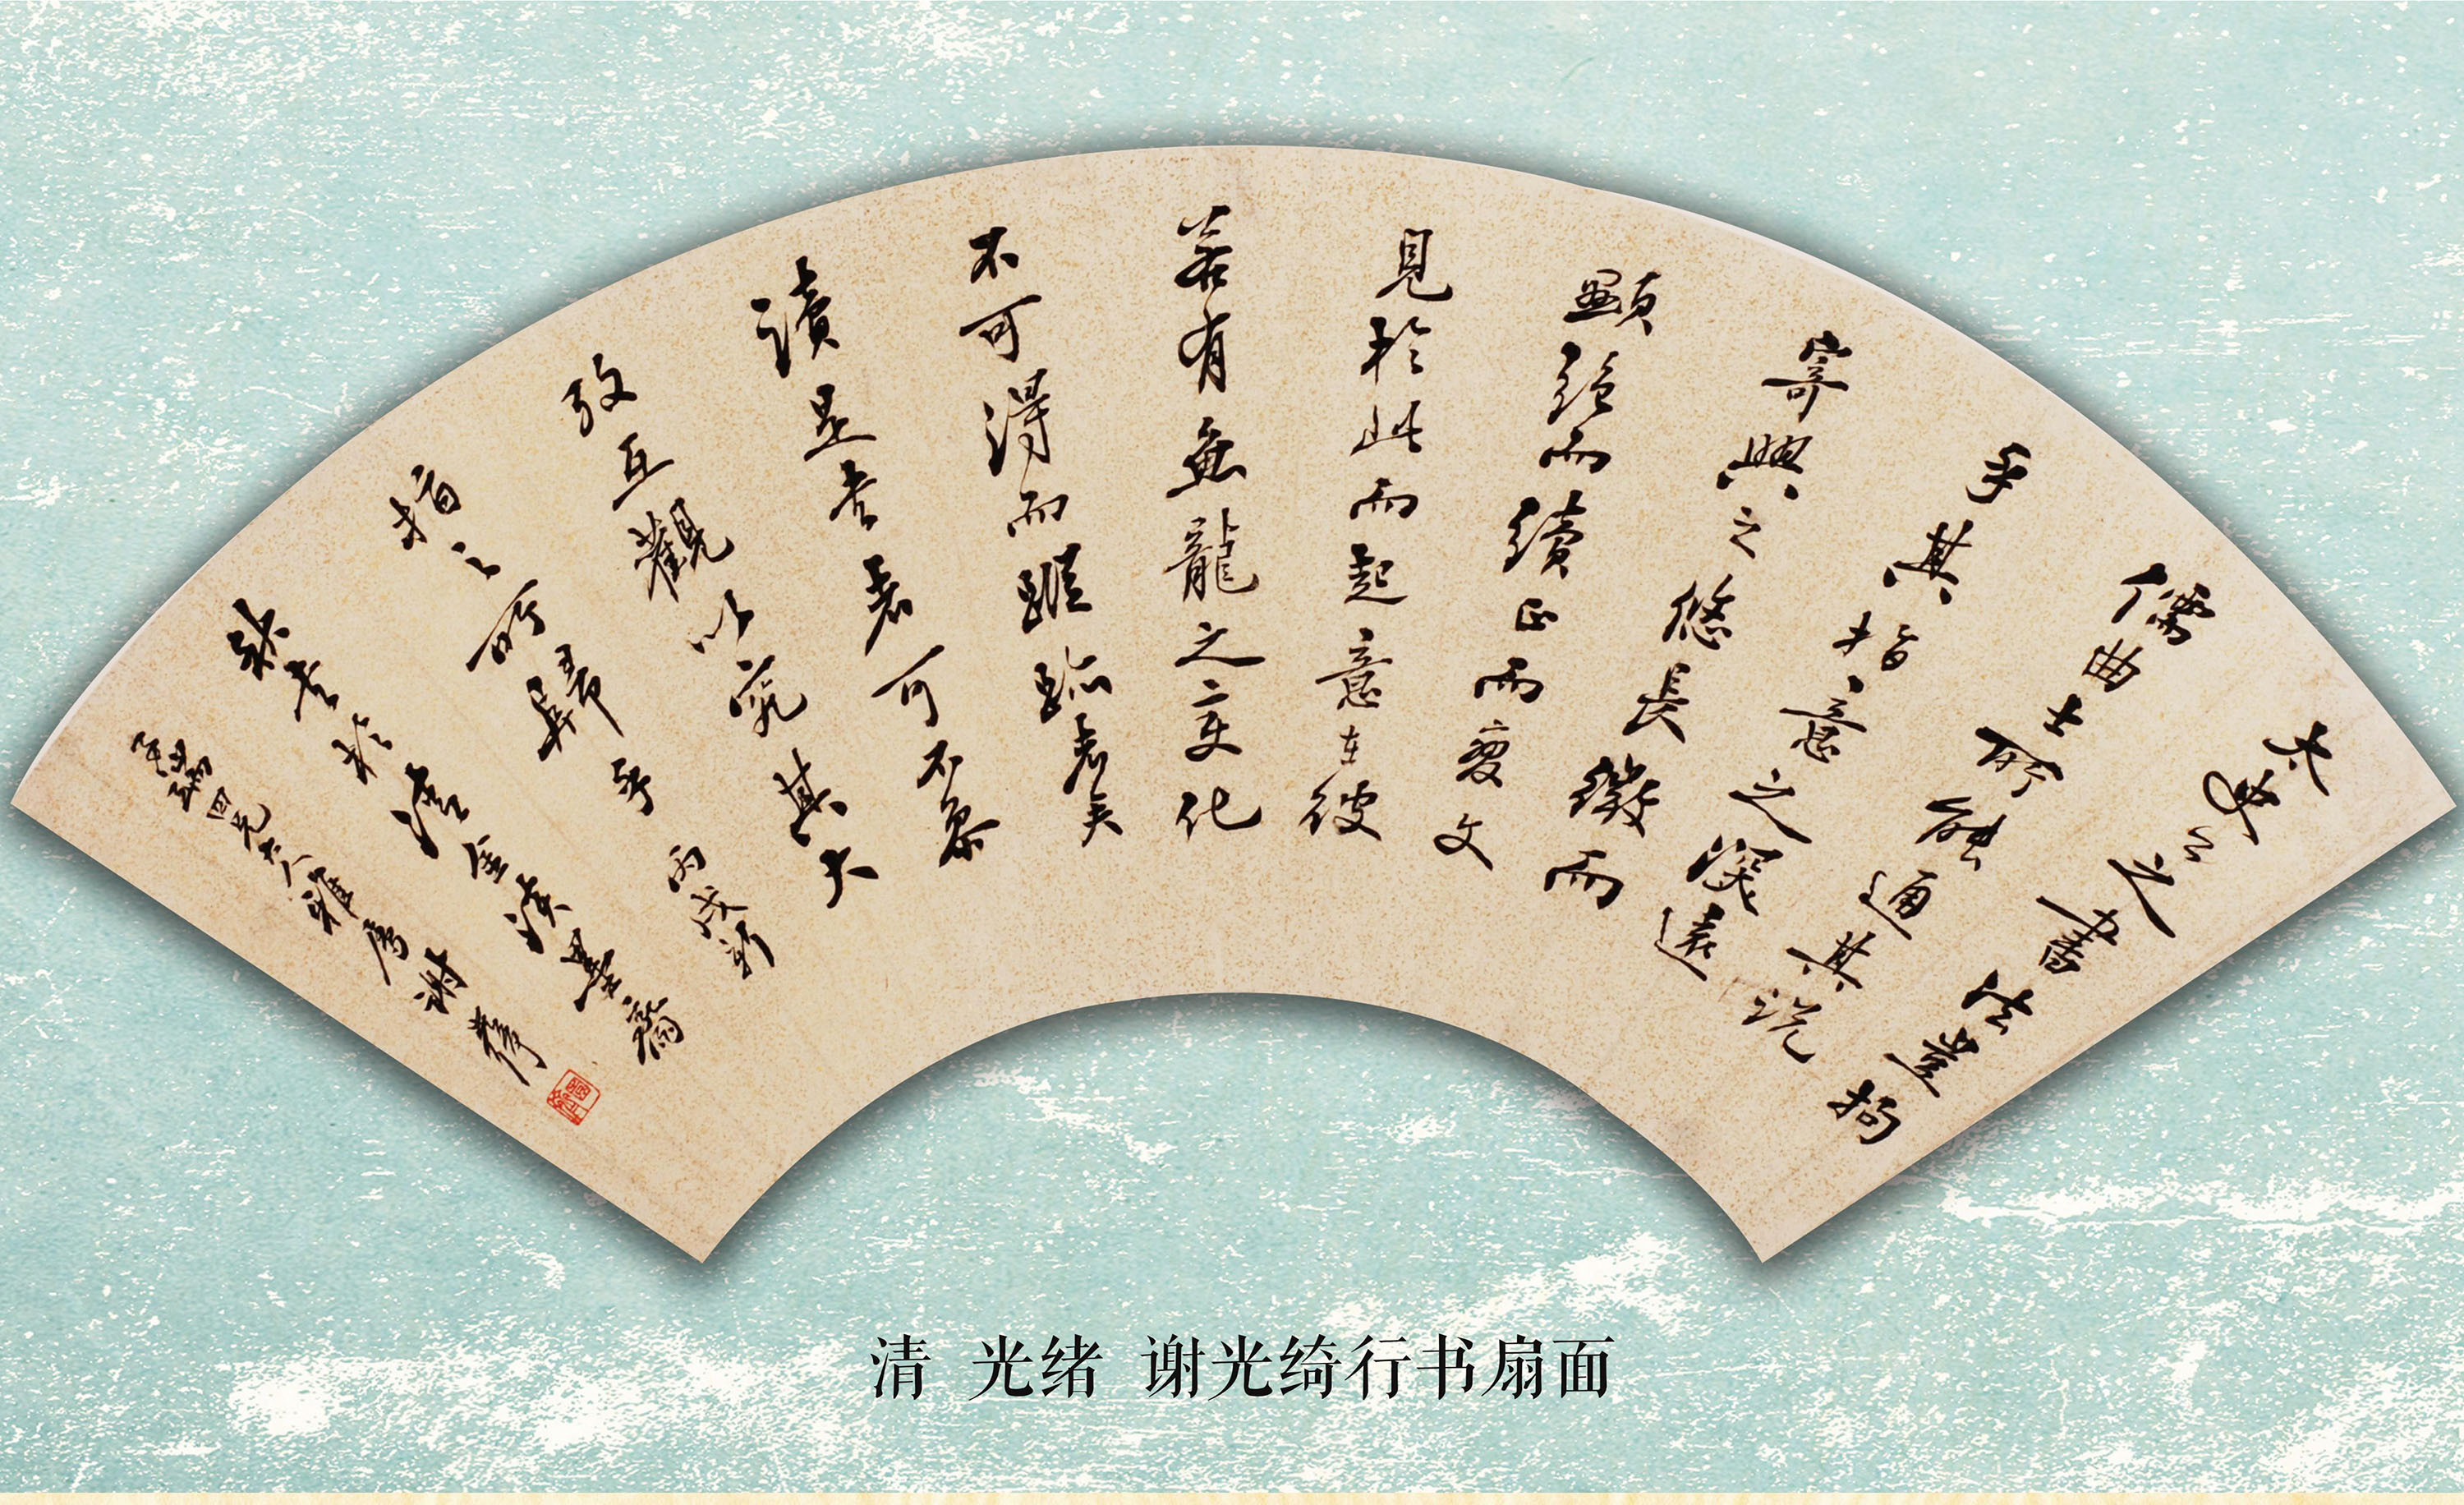 太史公之書法豈拘
儒曲士所能通其説
乎其指意之深遠
寄興之悠長微而
顯絕而續正而變文
見於此而起意在彼
若有魚龍之變化
不可得而蹤跡者矣
讀是書者可不參
攷互觀以究其大
指之所歸乎 丙戌新
秋書於清
四兄大人雅屬謝
清 光绪 谢光绮行书扇面